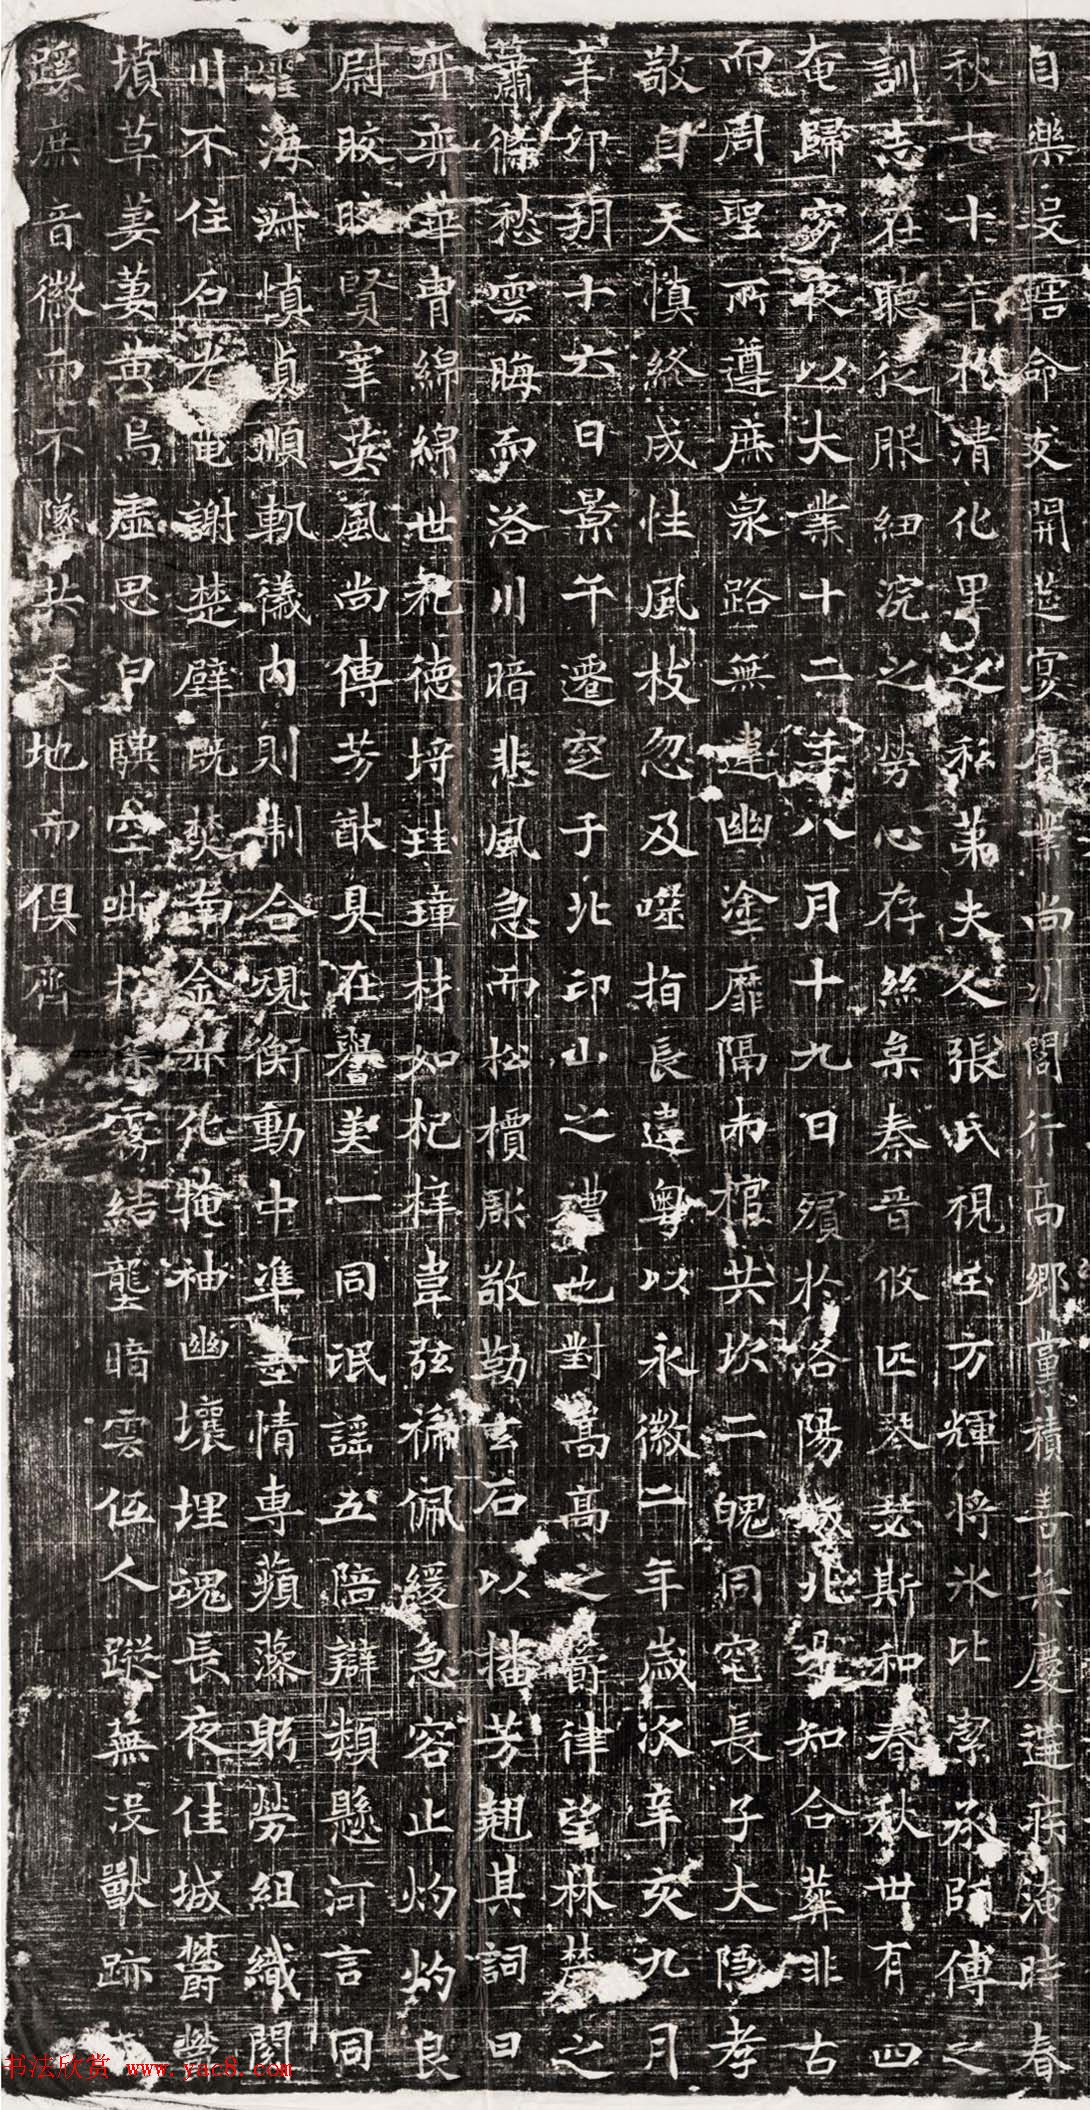 自樂哲命交開筵寅業尚州閭行高鄉黨積善無慶遘病淹時春
秋七十卒於清化里之私第夫人張氏視生方輝將冰比潔承師傅
訓志在聽從服紃浣之勞心存絲枲秦晉攸匹琴瑟斯和春秋卌有四
奄歸窮以大業十二年八月十九日殯於洛陽城北知合葬非古
而周聖所遵庶泉路無違幽塗靡隔兩棺共坎二魄同窀長子大隱孝
敬自天慎終成性風枝忽及噬指長違粵以永徽二年歲次辛亥九月
辛卯朔十六日景午遷窆于北邙山之禮也對嵩高之律望林麓之
蕭條愁雲晦而洛川暗悲風急而松檟彫敬勒玄石以播芳翹其詞曰
弈弈華胄綿綿世祀德埒珪璋材如杞梓韋弦褊佩緩急容止灼灼良
尉皎皎賢宰英風尚傳芳猷具在譽美一同氓謠五陪辯類懸河言同
海淑慎貞順軌儀內則制合規衡動中準情專蘋藻躬勞組織閱
川不住石電謝楚璧既焚南金掩袖幽壤埋魂長夜佳城鬱
墳草萋萋黃鳥思白驥空霧結壟暗雲低人蹤蕪沒獸跡
蹊庶音徽而不墜共天地而俱齊
书法欣赏 www.yac8.com